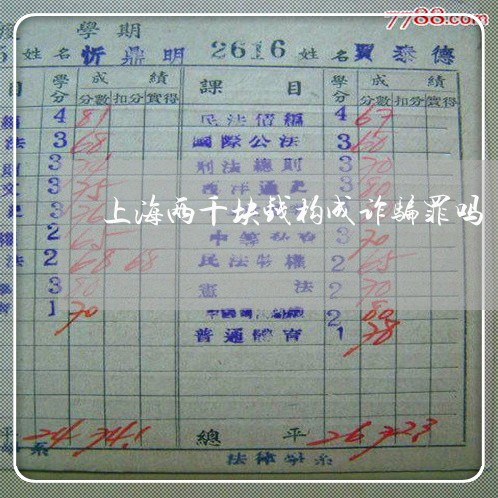 7788.com
學期
姓名 忻鼎明 2616 姓名 賈泰德
目 學分 成績 課目 學分 成績
分數 扣分 實得 分數 扣分 實得
4 81 民法債編 4 67
法 3 68 國際公法 3 60
則 3 刑法總則 3 70
文 3 75 西洋通史 3 80
上海两千块钱构成诈骗罪吗
史 3 76
權 2 65 中等私有 3 70
法 2 68 68 民法物權 2 65
3 80 憲法 2 70
育 1 70 2 80
普通體育 1 78
平 24 74.1 總平 26 72.3
系 法律學系